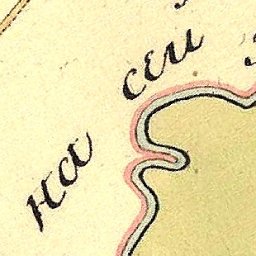 на сеи